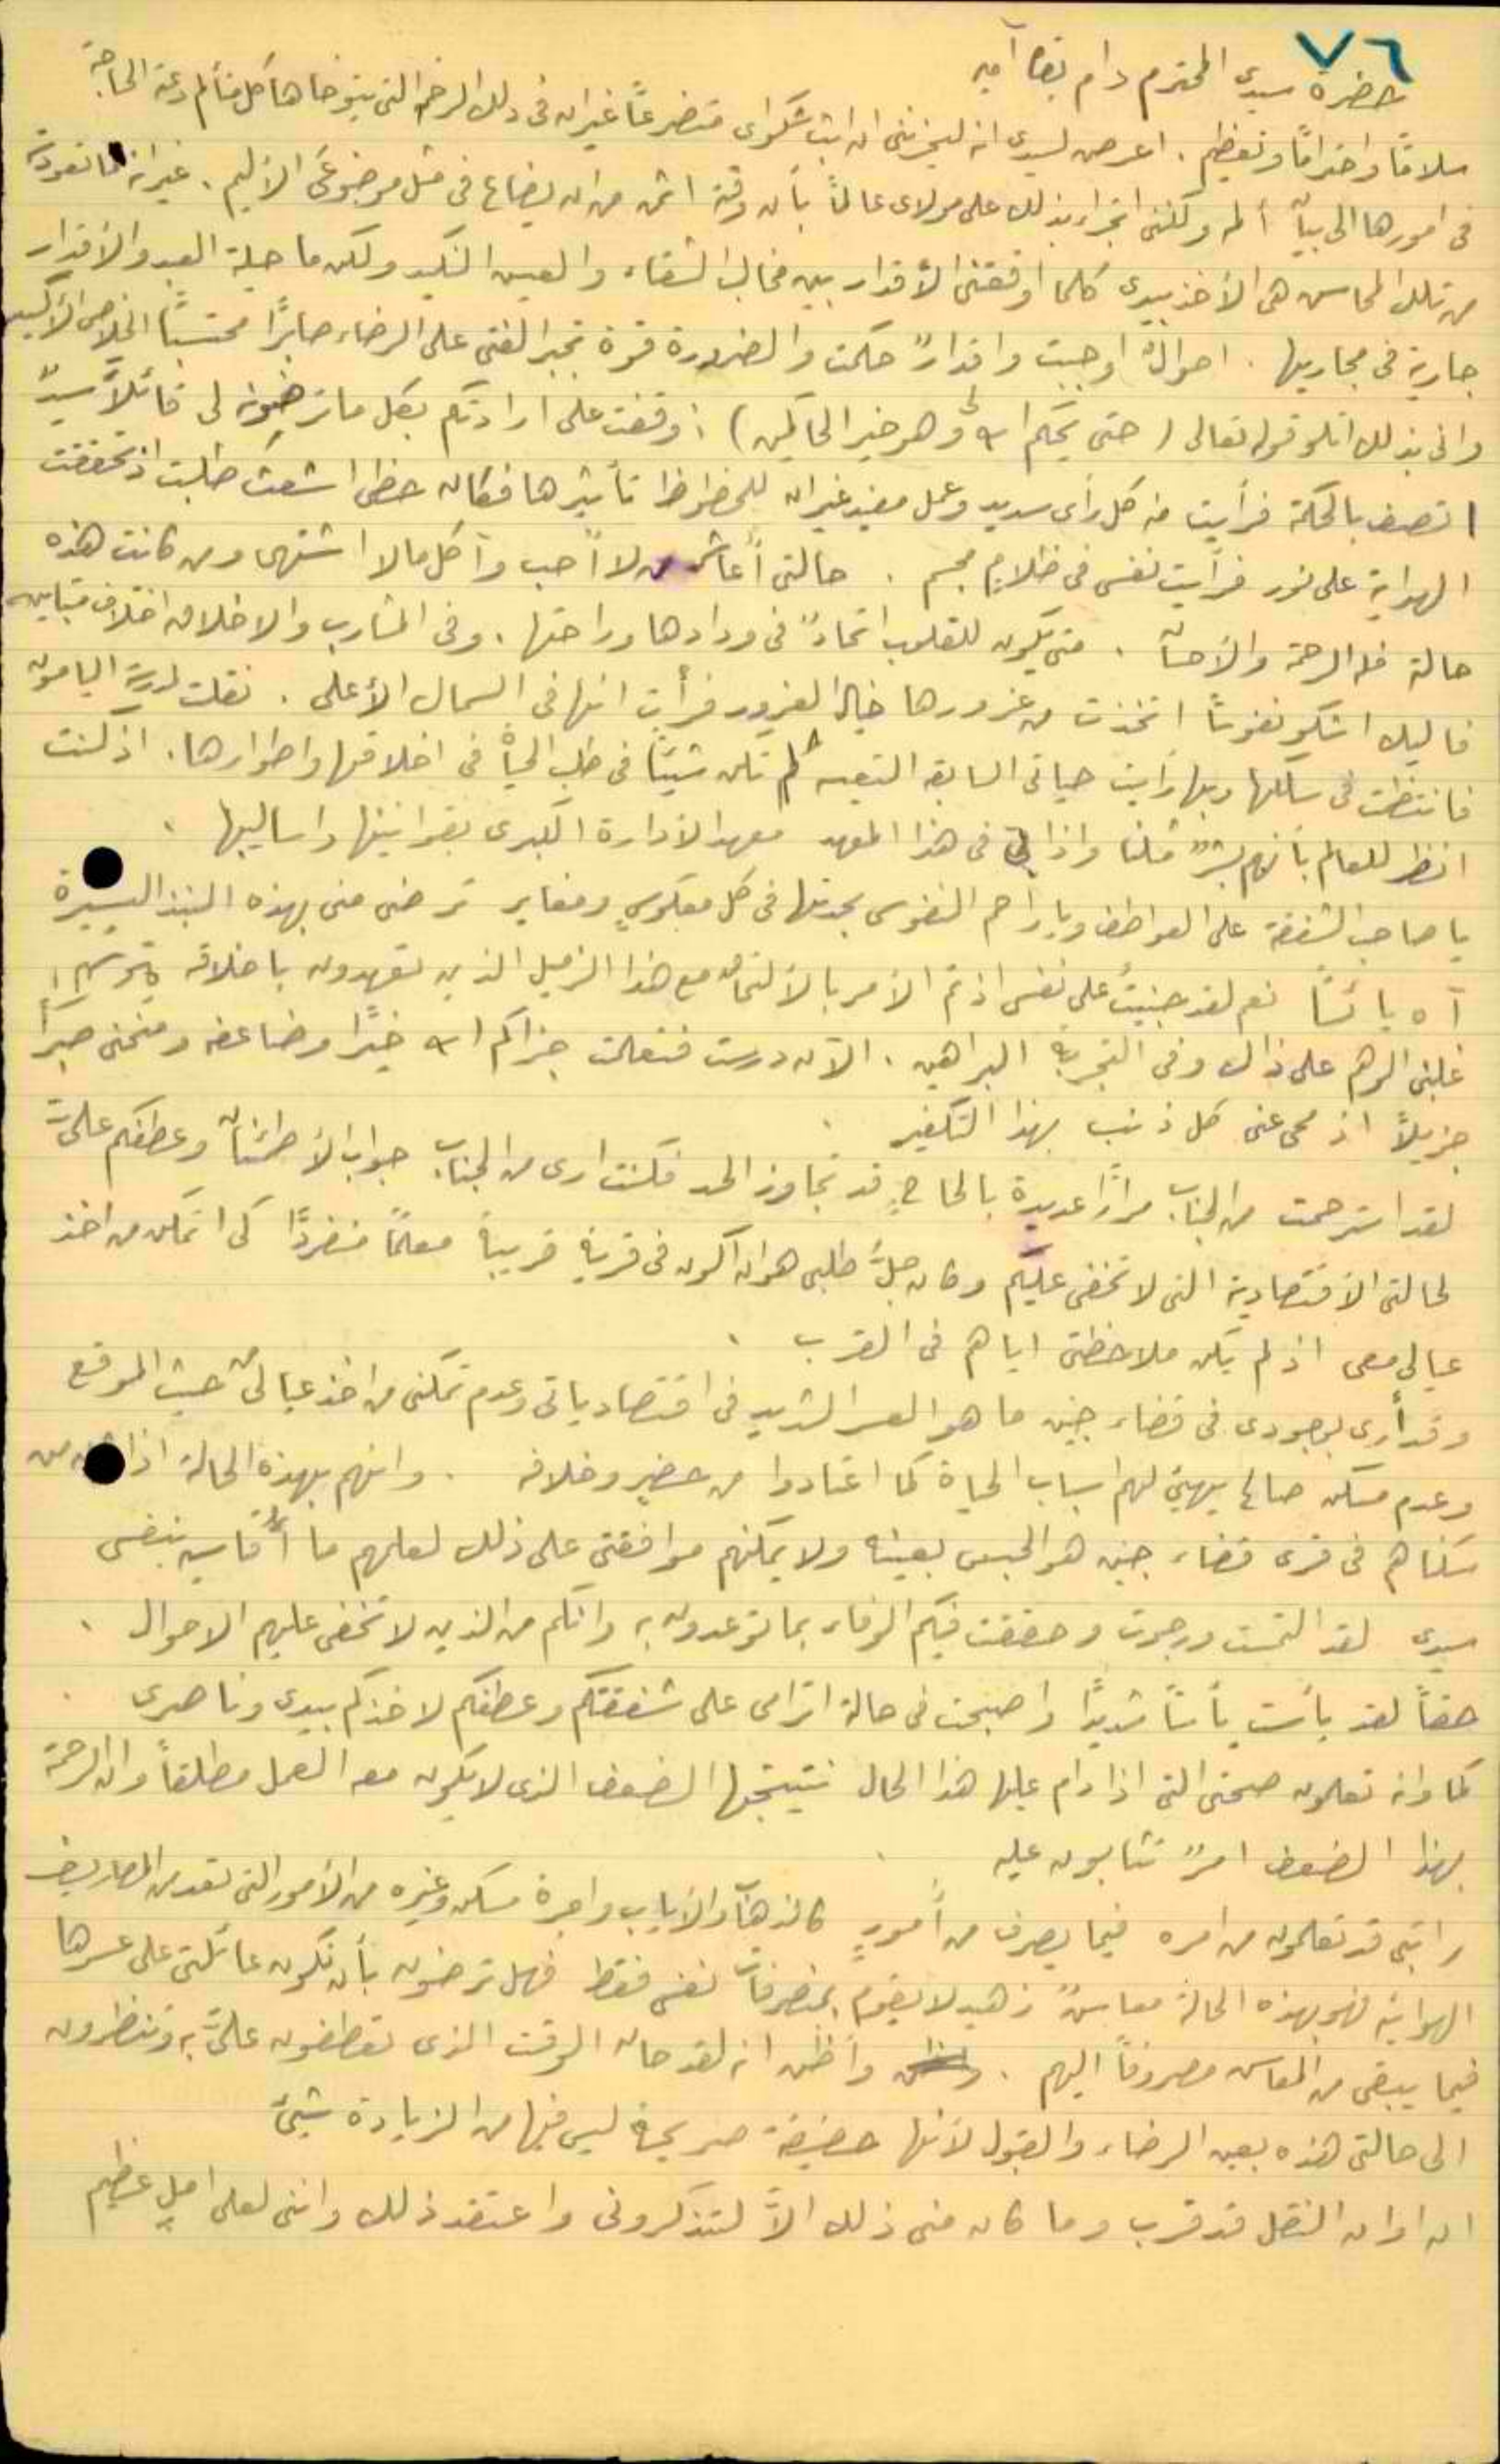 ٧٦
حضرة سيدي المحترم دام بقاه آمين
سلامًا واحترامًا وتعظيم. اعرض لسيدي انه ليحزنني ان ابث شكواي متضرعًا غير ان في ذلك التي يتوخاها كل متألم دعته الحاجة
في امورها الى بيان ألمه ولكنني اتجرأ بذلك على مولاي عالمًا بأن وقته اثمن من ان يضاع في مثل موضوعي الأليم. غير ان تعودته
من تلك المحاسن هي الأخذ بيدي كلما اوقعتني الأقدار بين مخالب الشقاء والعيس النكيد ولكن ما حيلة العبد والأقدار
جارية في مجاريها. احوالٌ اوجبت واقدارٌ حكمت والضرورة قوة تجبر الفتى على الرضاء صابرًا محتسبًا الخلاص الأكيد
واني بذلك اتلو قوله تعالى (حتى يحكم الله لي وهو خير الحاكمين) : وقفت على ارادتكم بكل ما ترضونه لي قائلًا سيدٌ
اتصف بالحكمة فرأيت منه كل رأي سديد وعمل مفيد غير ان للحظوظ تأثيرها فكان حظي اشعث طلبت اذ تحققت
الهداية على نور فرأيت نفسي في ظلامٍ مجسم. حالتي أعاشر من لا أحب وآكل ما لا اشتهي ومن كانت هذه
حالة فله الرحمة والأحسان. متى يكون للقلوب اتحادٌ في ودادها وراحتها. وفي المشارب والاخلاق اختلاف متباين
فاليك اشكو نفوسًا اتخذت من غرورها خيال الغرور فرأت انها في السمال الأعلى. نقلت لمدرسة اليامون
فانتظمت في سلكها وبها رأيت حياتي السابقة التعسه لم تكن شيئًا في طلب الحياة في اخلاقها واطوارها. اذ كنت
انظر للعالم بأنهم بشرٌ مثلنا واذا بي في هذا المعهد معهد الأدارة الكبرى بقوانينها واساليبها.
يا صاحب الشفقة على العواطف ويا راحم النفوس بحدتها في كل معكوسٍ ومغاير ترضى مني بهذه النبذ اليسيرة
آه يائسًا نعم لقد جنيتُ على نفسي اذ تم الأمر بالألتحاق مع هذا الزميل الذين تعهدون باخلاقه
غلبني الوهم على ذاك وفي التجربة البراهين. الآن درست فتعلمت جزاكم الله خيرًا وضاعفه ومنحني صبرًا
جزيلًا اذ محى عني كل ذنب بهذا التكفير.
لقد استرحمت من الجناب مرارًا عديدة بالحاحٍ قد تجاوز الحد فكنت ارى من الجناب جواب الأطمئنان وعطفكم عليَّ
لحالتي الأقتصادية التي لا تخفى عليكم وكان جلُّ طلبي هو ان اكون في قرية قريبة معلمًا منفردًا كي اتمكن من اخذ
عيالي معي اذ لم يكن ملاحظتي اياهم في القرب.
وقد أرى بوجودي في قضاء جنين ما هو العسر الشديد في اقتصادياتي وعدم تمكني من اخذ عيالي من حيث الموقع
وعدم مسكن صالح يهيئ لهم اسباب الحياة كما اعتادوا من حضير وخلافه. وانهم بهذه الحالة اذا من
سكناهم في قرى قضاء جنين هو الحبس بعينه ولا يمكنهم موافقتي على ذلك لعلمهم ما أقاسيه بنفسي
سيدي لقد التمست ورجوت وحققت فيكم الوفاء بما توعدون به وانكم من الذين لا تخفى عليهم الاحوال.
حقًا لقد يأست يأسًا شديدًا واصبحت في حالة اترامى على شفقتكم وعطفكم لاخذكم بيدي وناصري.
كما وانه تعلمون صحتي التي اذا دام عليها هذا الحال نتيجتها الضعف الذي لا يكون معه العمل مطلقًا وان الرحمة
بهذا الضعف امرٌ تثابون عليه.
راتبي قد تعلمون من امره فيما يصرف من أمورٍ كالذهاب والأياب واجرة مسكن وغيره من الأمور التي تعد من المصاريف
الهوائية فهو بهذه الحالة معاشٌ زهيد لا يقوم بمصرفات نفسي فقط فهل ترضون بأن تكون عائلتي على عسرها
فيما يبقى من المعاش مصروفًا اليهم. وأظن انه لقد حان الوقت الذي تعطفون عليَّ به وتنظرون
الى حالتي هذه بعين الرضاء والقبول لأنها حقيقة صريحة ليس فيها من الزيادة شيئ
ان اوان النقل قد قرب وما كان مني ذلك الاَّ لتذكروني واعتقد ذلك وانني لعلى املٍ عظيم